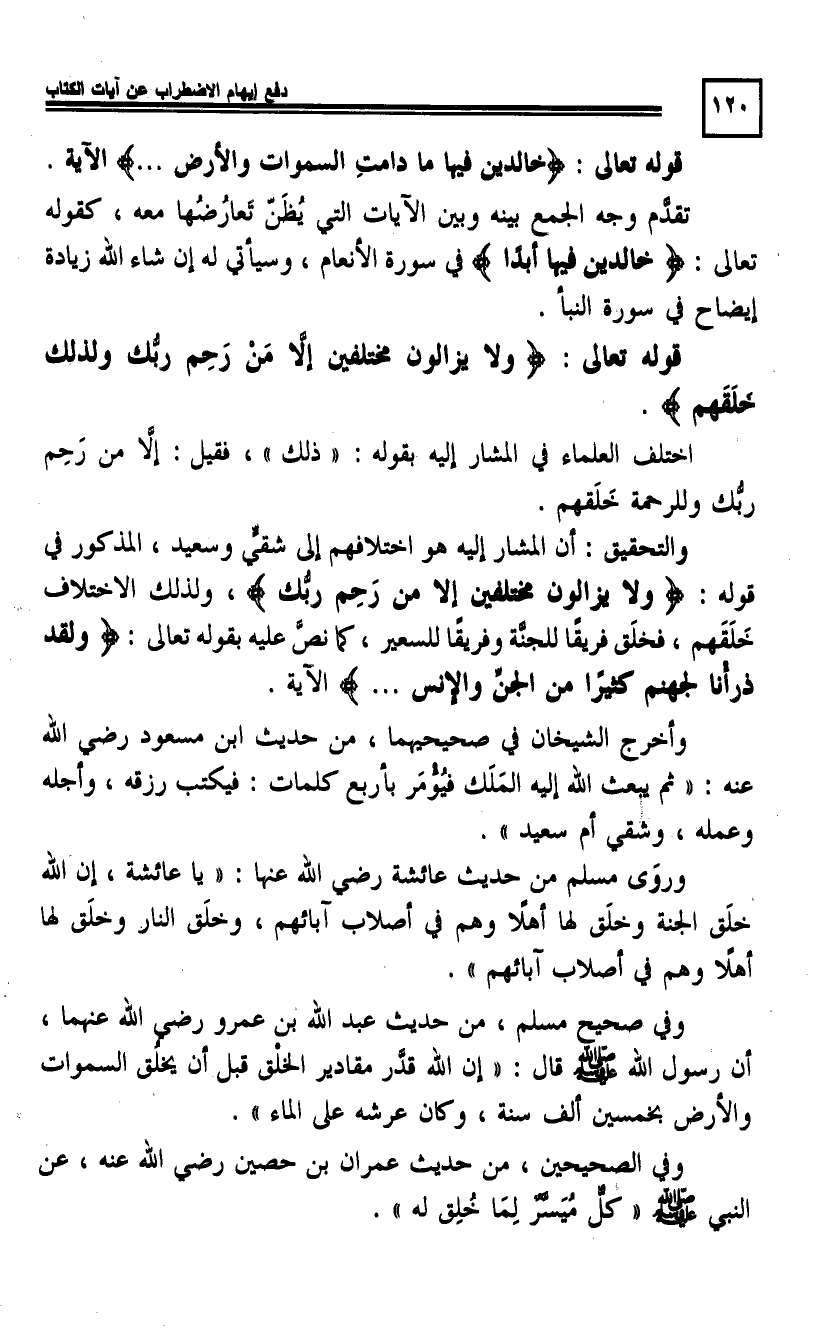 ١٢٠
دفع إيهام الاضطراب عن آيات الكتاب
قوله تعالى : ﴿خالدين فيها ما دامتِ السموات والأرض ...﴾ الآية .
تقدَّم وجه الجمع بينه وبين الآيات التي يُظَنّ تَعارُضُها معه ، كقوله
تعالى : ﴿ خالدين فيها أبدًا ﴾ في سورة الأنعام ، وسيأتي له إن شاء الله زيادة
إيضاح في سورة النبأ .
قوله تعالى : ﴿ ولا يزالون مختلفين إلَّا مَنْ رَحِم ربُّك ولذلك
خَلَقَهم ﴾ .
اختلف العلماء في المشار إليه بقوله : « ذلك » ، فقيل : إلَّا من رَحِم
ربُّك وللرحمة خَلَقهم .
والتحقيق : أن المشار إليه هو اختلافهم إلى شقيٍّ وسعيد ، المذكور في
قوله : ﴿ ولا يزالون مختلفين إلا من رَحِم ربُّك ﴾ ، ولذلك الاختلاف
خَلَقَهم ، فخلَق فريقًا للجنَّة وفريقًا للسعير ، كما نصَّ عليه بقوله تعالى : ﴿ ولقد
ذرأنا لجهنم كثيرًا من الجنِّ والإنس ... ﴾ الآية .
وأخرج الشيخان في صحيحيهما ، من حديث ابن مسعود رضي الله
عنه : « ثم يبعث الله إليه المَلَك فيُؤْمَر بأربع كلمات : فيكتب رزقه ، وأجله
وعمله ، وشقي أم سعيد » .
وروَى مسلم من حديث عائشة رضي الله عنها : « يا عائشة ، إن الله
خلَق الجنة وخلَق لها أهلًا وهم في أصلاب آبائهم ، وخلَق النار وخلَق لها
أهلًا وهم في أصلاب آبائهم » .
وفي صحيح مسلم ، من حديث عبد الله بن عمرو رضي الله عنهما ،
أن رسول الله ﷺ قال : « إن الله قدَّر مقادير الخلْق قبل أن يخلُق السموات
والأرض بخمسين ألف سنة ، وكان عرشه على الماء » .
وفي الصحيحين ، من حديث عمران بن حصين رضي الله عنه ، عن
النبي ﷺ « كلٌّ مُيَسَّرٌ لِمَا خُلِق له » .